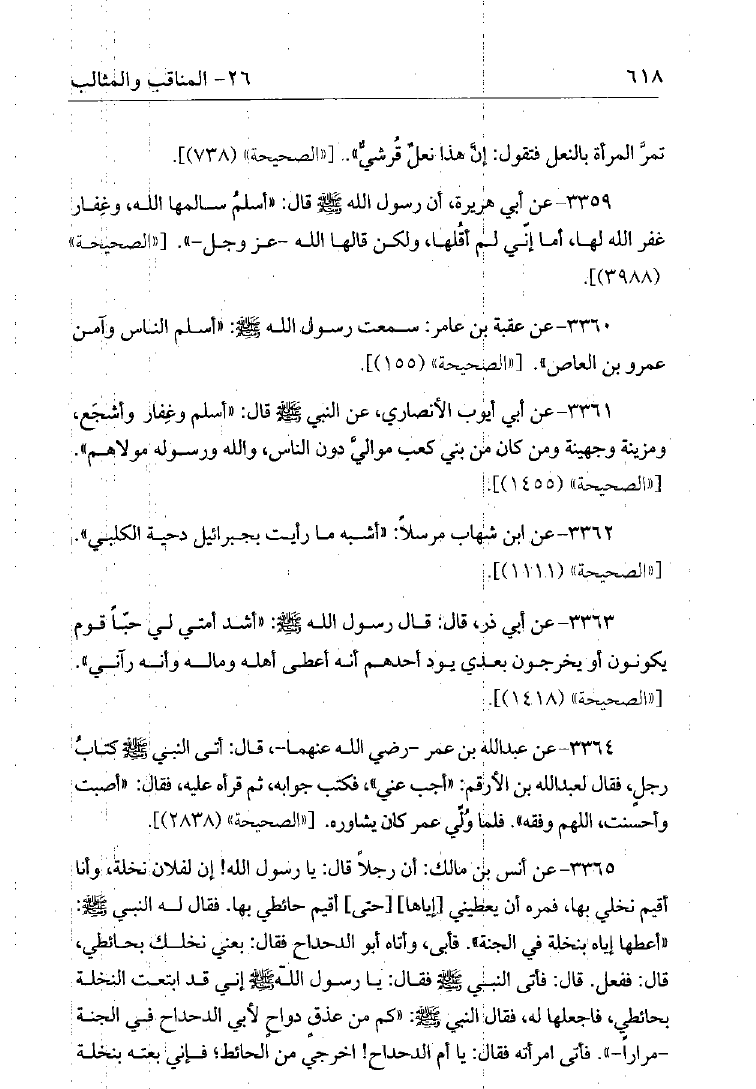 ٦١٨ ٢٦- المناقب والمثالب
تمرَّ المرأة بالنعل فتقول: إنَّ هذا نعلٌ قُرشيٌّ». [«الصحيحة» (٧٣٨)].
٣٣٥٩- عن أبي هريرة، أن رسول الله ﷺ قال: «أسلمُ سالمها الله، وغِفار
غفر الله لها، أما إنّي لم أقُلها، ولكن قالها الله -عز وجل-». [«الصحيحة»
(٣٩٨٨)].
٣٣٦٠- عن عقبة بن عامر: سمعت رسول الله ﷺ: «أسلم الناس وآمن
عمرو بن العاص». [«الصحيحة» (١٥٥)].
٣٣٦١- عن أبي أيوب الأنصاري، عن النبي ﷺ قال: «أسلم وغِفار وأشجَع،
ومزينة وجهينة ومن كان من بني كعب مواليَّ دون الناس، والله ورسوله مولاهم».
[«الصحيحة» (١٤٥٥)].
٣٣٦٢- عن ابن شهاب مرسلاً: «أشبه ما رأيت بجبرائيل دحية الكلبي».
[«الصحيحة» (١١١١)].
٣٣٦٣- عن أبي ذر، قال: قال رسول الله ﷺ: «أشد أمتي لي حبّاً قوم
يكونون أو يخرجون بعدي يود أحدهم أنه أعطى أهله وماله وأنه رآني».
[«الصحيحة» (١٤١٨)].
٣٣٦٤- عن عبدالله بن عمر -رضي الله عنهما-، قال: أتى النبي ﷺ كتابُ
رجلٍ، فقال لعبدالله بن الأرقم: «أجب عني»، فكتب جوابه، ثم قرأه عليه، فقال: «أصبت
وأحسنت، اللهم وفقه». فلما وُلِّي عمر كان يشاوره. [«الصحيحة» (٢٨٣٨)].
٣٣٦٥- عن أنس بن مالك: أن رجلاً قال: يا رسول الله! إن لفلان نخلة، وأنا
أقيم نخلي بها، فمره أن يعطيني [إياها] [حتى] أقيم حائطي بها. فقال له النبي ﷺ:
«أعطها إياه بنخلة في الجنة». فأبى، وأتاه أبو الدحداح فقال: بعني نخلك بحائطي،
قال: ففعل. قال: فأتى النبي ﷺ فقال: يا رسول اللّه ﷺ إني قد ابتعت النخلة
بحائطي، فاجعلها له، فقال النبي ﷺ: «كم من عذقٍ دواحٍ لأبي الدحداح في الجنة
-مراراً-». فأتى امرأته فقال: يا أم الدحداح! اخرجي من الحائط؛ فإني بعته بنخلة